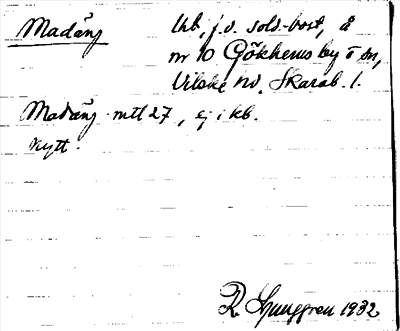 Madäng lht, f.d. sold.-bost. å
nr 10 Gökhems by o sn,
Vilske hd. Skarab. l.
Madäng mtl 27, ej i kb.
nytt.
R. Ljunggren 1932